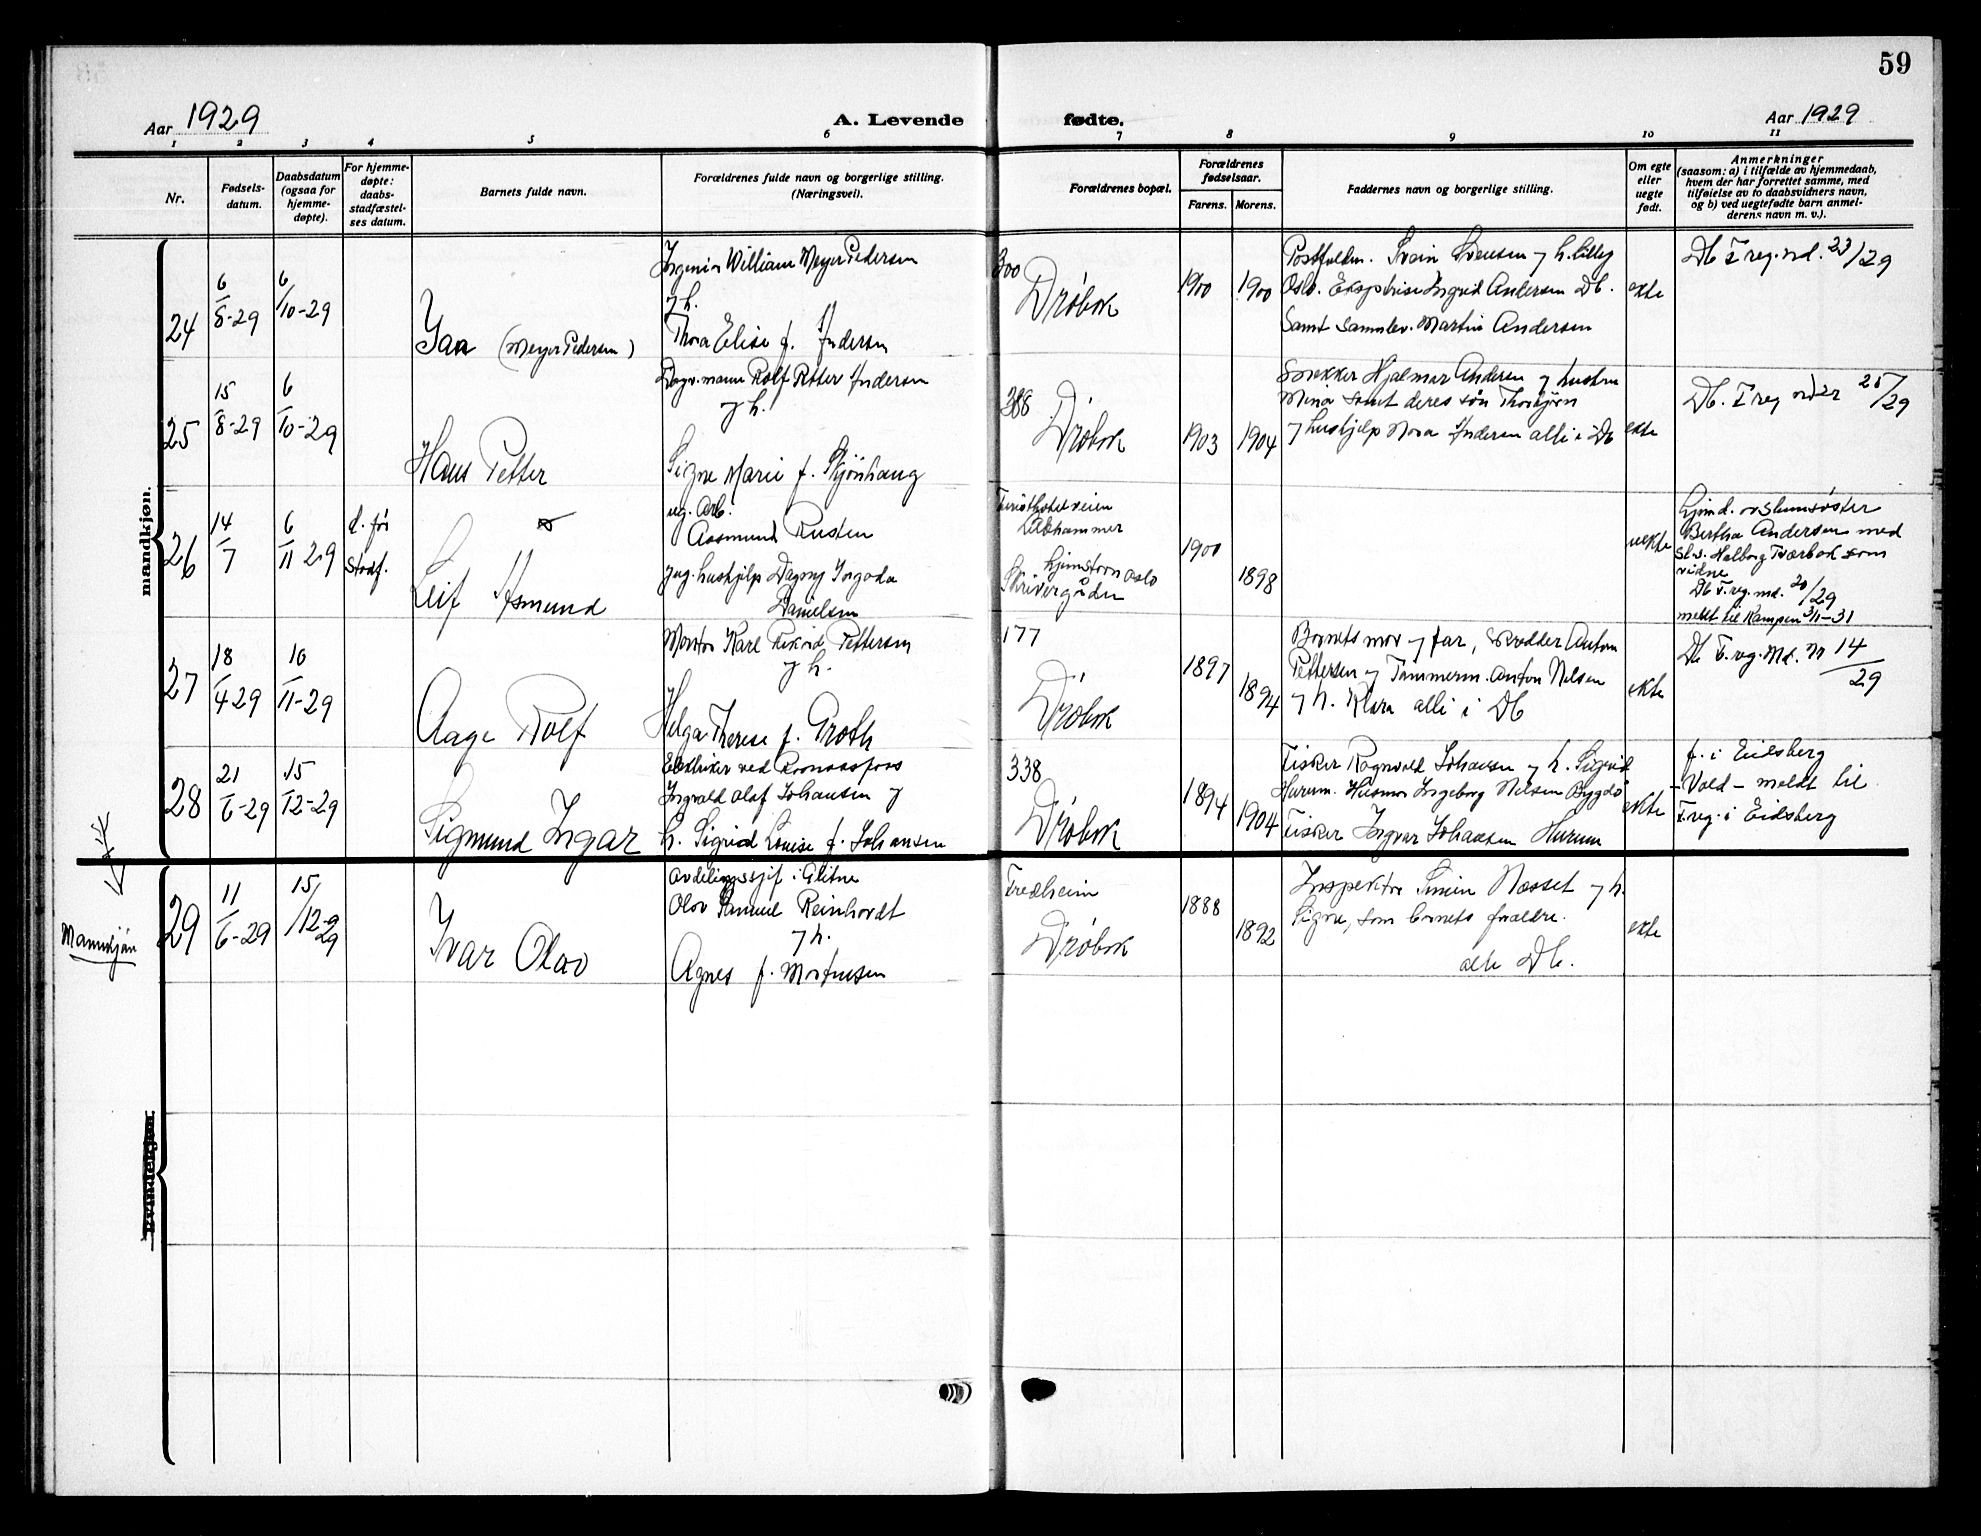 59
Aar 1929
A. Levende
fødte.
Aar 1929
1 2 3 4 5 6 7 8 9 10 11
Nr.
Fødsels-
datum.
Daabsdatum
(ogsaa for
hjemme-
døpte).
For hjemme-
døpte:
daabs-
stadfæstel-
ses datum.
Barnets fulde navn.
Forældrenes fulde navn og borgerlige stilling.
(Næringsvei).
Forældrenes bopæl.
Forældrenes
fødselsaar.
Farens. Morens.
Faddernes navn og borgerlige stilling.
Om egte
eller
uegte
født.
Anmerkninger
(saasom: a) i tilfælde av hjemmedaab,
hvem der har forrettet samme, med
tilføielse av to daabsvidners navn,
og b) ved uegtefødte barn anmel-
derens navn m. v.).
mandkjøn.
24
6/8-29
6/10-29
Jan (Meyer Pedersen)
Ingeniør William Meyer Pedersen
og h.
Thora Elise f. Andersen
300
Drøbak
1900
1900
Svein Svensen og h. Lilly
Oslo. Ingrid Andersen Db.
Samt Martin Andersen
ekte
Db F reg. nd. 23/29
25
15/8-29
6/10-29
Hans Petter
Dagv. mann Rolf Petter Andersen
og h.
Signe Marie f. Skjønhaug
388
Drøbak
1903
1904
Snekker Hjalmar Andersen og hustru
Mina samt deres søn Thorbjørn
og hushjelp Nora Andersen alle i Db
ekte
Db. F reg 25/29
26
14/7
6/11 29
d. før
stadf.
Leif Asmund
ug. Arb.
Aasmund Rusten
og ug. hushjelp Dagny Ingoda
Danielsen
Turisthotelveien
Lillehammer
hjemstavn Oslo
Skrivergården
1900
1898
uekte
hjemd. av slumsøster
Bertha Andersen med
sl.s. Halborg Tverbak som
vidne
Db F. reg. nd. 20/29
meldt til Kampen 3/11-31
27
18/4 29
10/11-29
Aage Rolf
Montør Karl Rikard Pettersen
og h.
Helga Therese f. Groth
177
Drøbak
1897
1894
Barnets mor og far, Skredder Anton
Pettersen og Tømmerm. Anton Nelsen
og h. Klara alle i Db
ekte
Db F. reg. Nd. Nr 14/29
28
21/6-29
15/12-29
Sigmund Ingar
Elektriker ved Raanaasfoss
Ingvald Olaf Johansen og
h. Sigrid Louise f. Johansen
338
Drøbak
1894
1904
Fisker Ragnvald Johansen og h. Sigrid
Hurum. Husmor Ingeborg Nelsen Bygdø
Fisker Ingvar Johansen Hurum
ekte
f. i Eidsberg
- Vold - meldt til
F. reg. i Eidsberg
Mannkjøn
29
11/6-29
15/12-29
Ivar Olav
Avdelingssjef i Glitne
Olav Samuel Reinhardt
og h.
Agnes f. Mortensen
Fredheim
Drøbak
1888
1892
Inspektør Simen Næsset og h.
Signe, som barnets forældre.
alle Db.
ekte
Kvindekjøn.